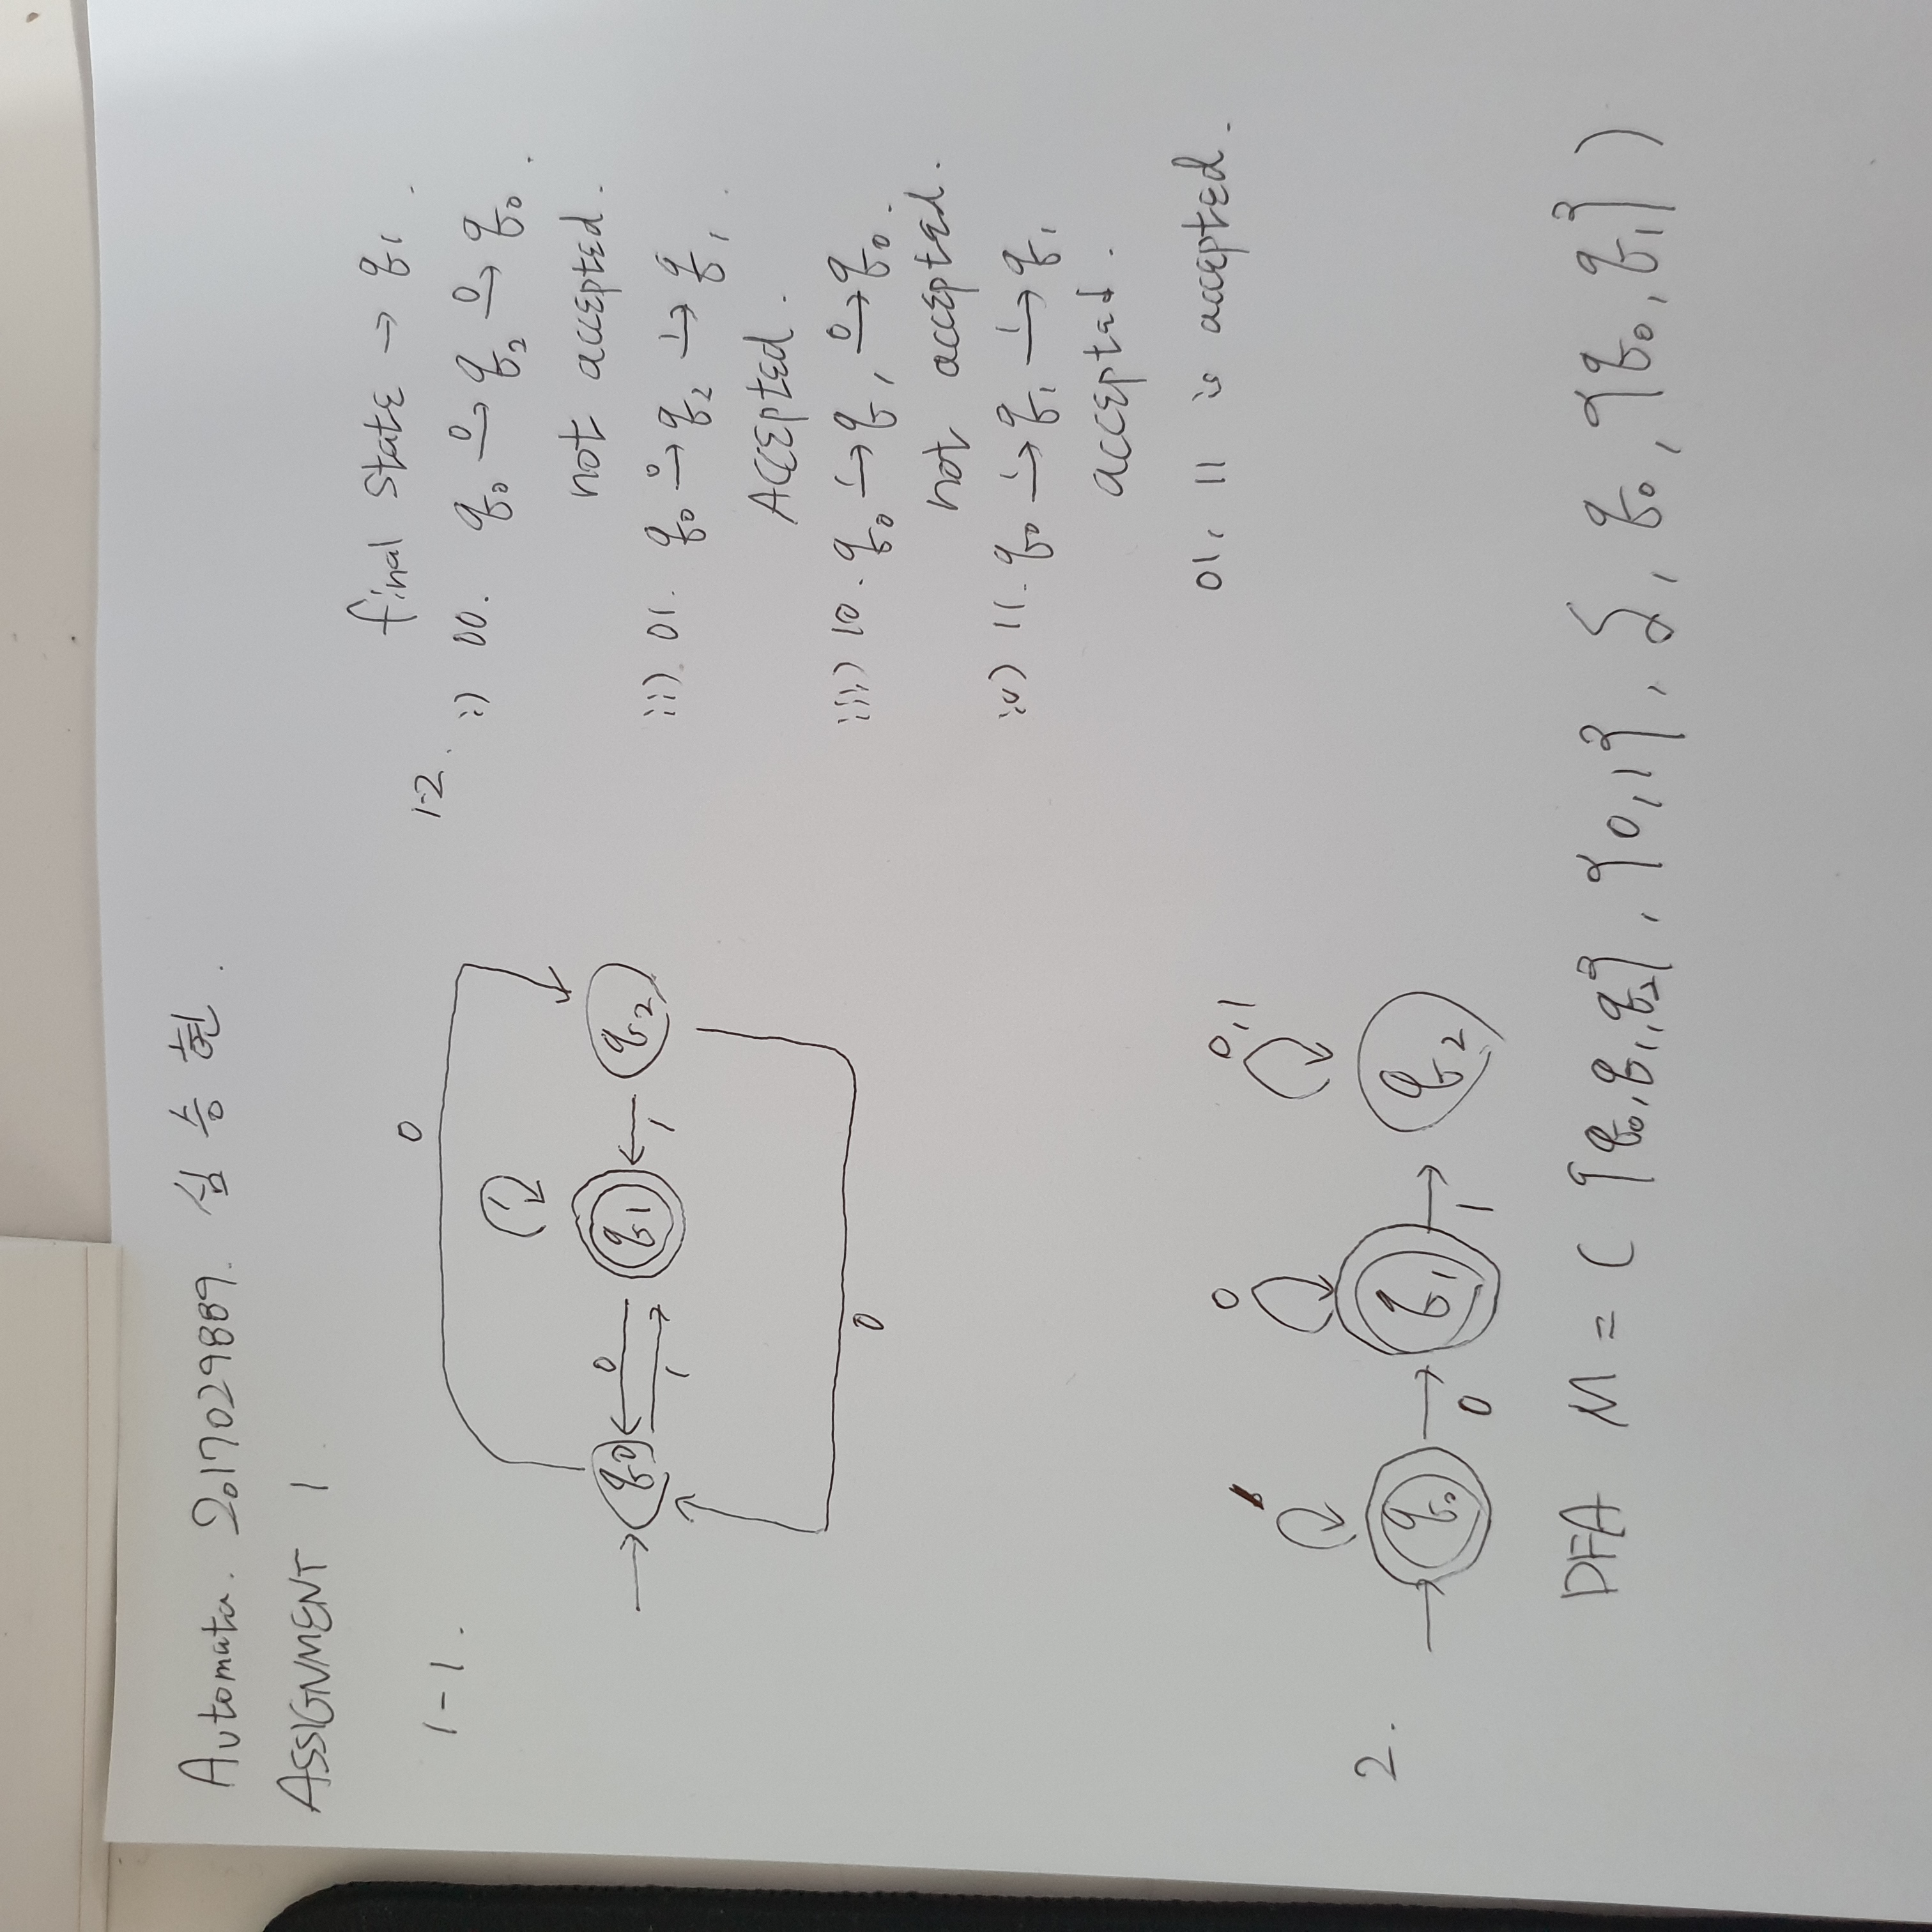 Automata. 2017029889. 심승현.
ASSIGNMENT 1
1-1.
0
1
q0 0 q1 q2
1 1
0
final state → q1.
1-2.
i) 00. q0 0→ q2 0→ q0.
not accepted.
ii) 01. q0 0→ q2 1→ q1.
Accepted.
iii) 10. q0 1→ q1 0→ q0.
not accepted.
iv) 11. q0 1→ q1 1→ q1
accepted.
01, 11 is accepted.
2.
1 0 0,1
q0 q1 q2
0 1
DFA M = ( {q0, q1, q2}, {0,1}, δ, q0, {q0, q1} )